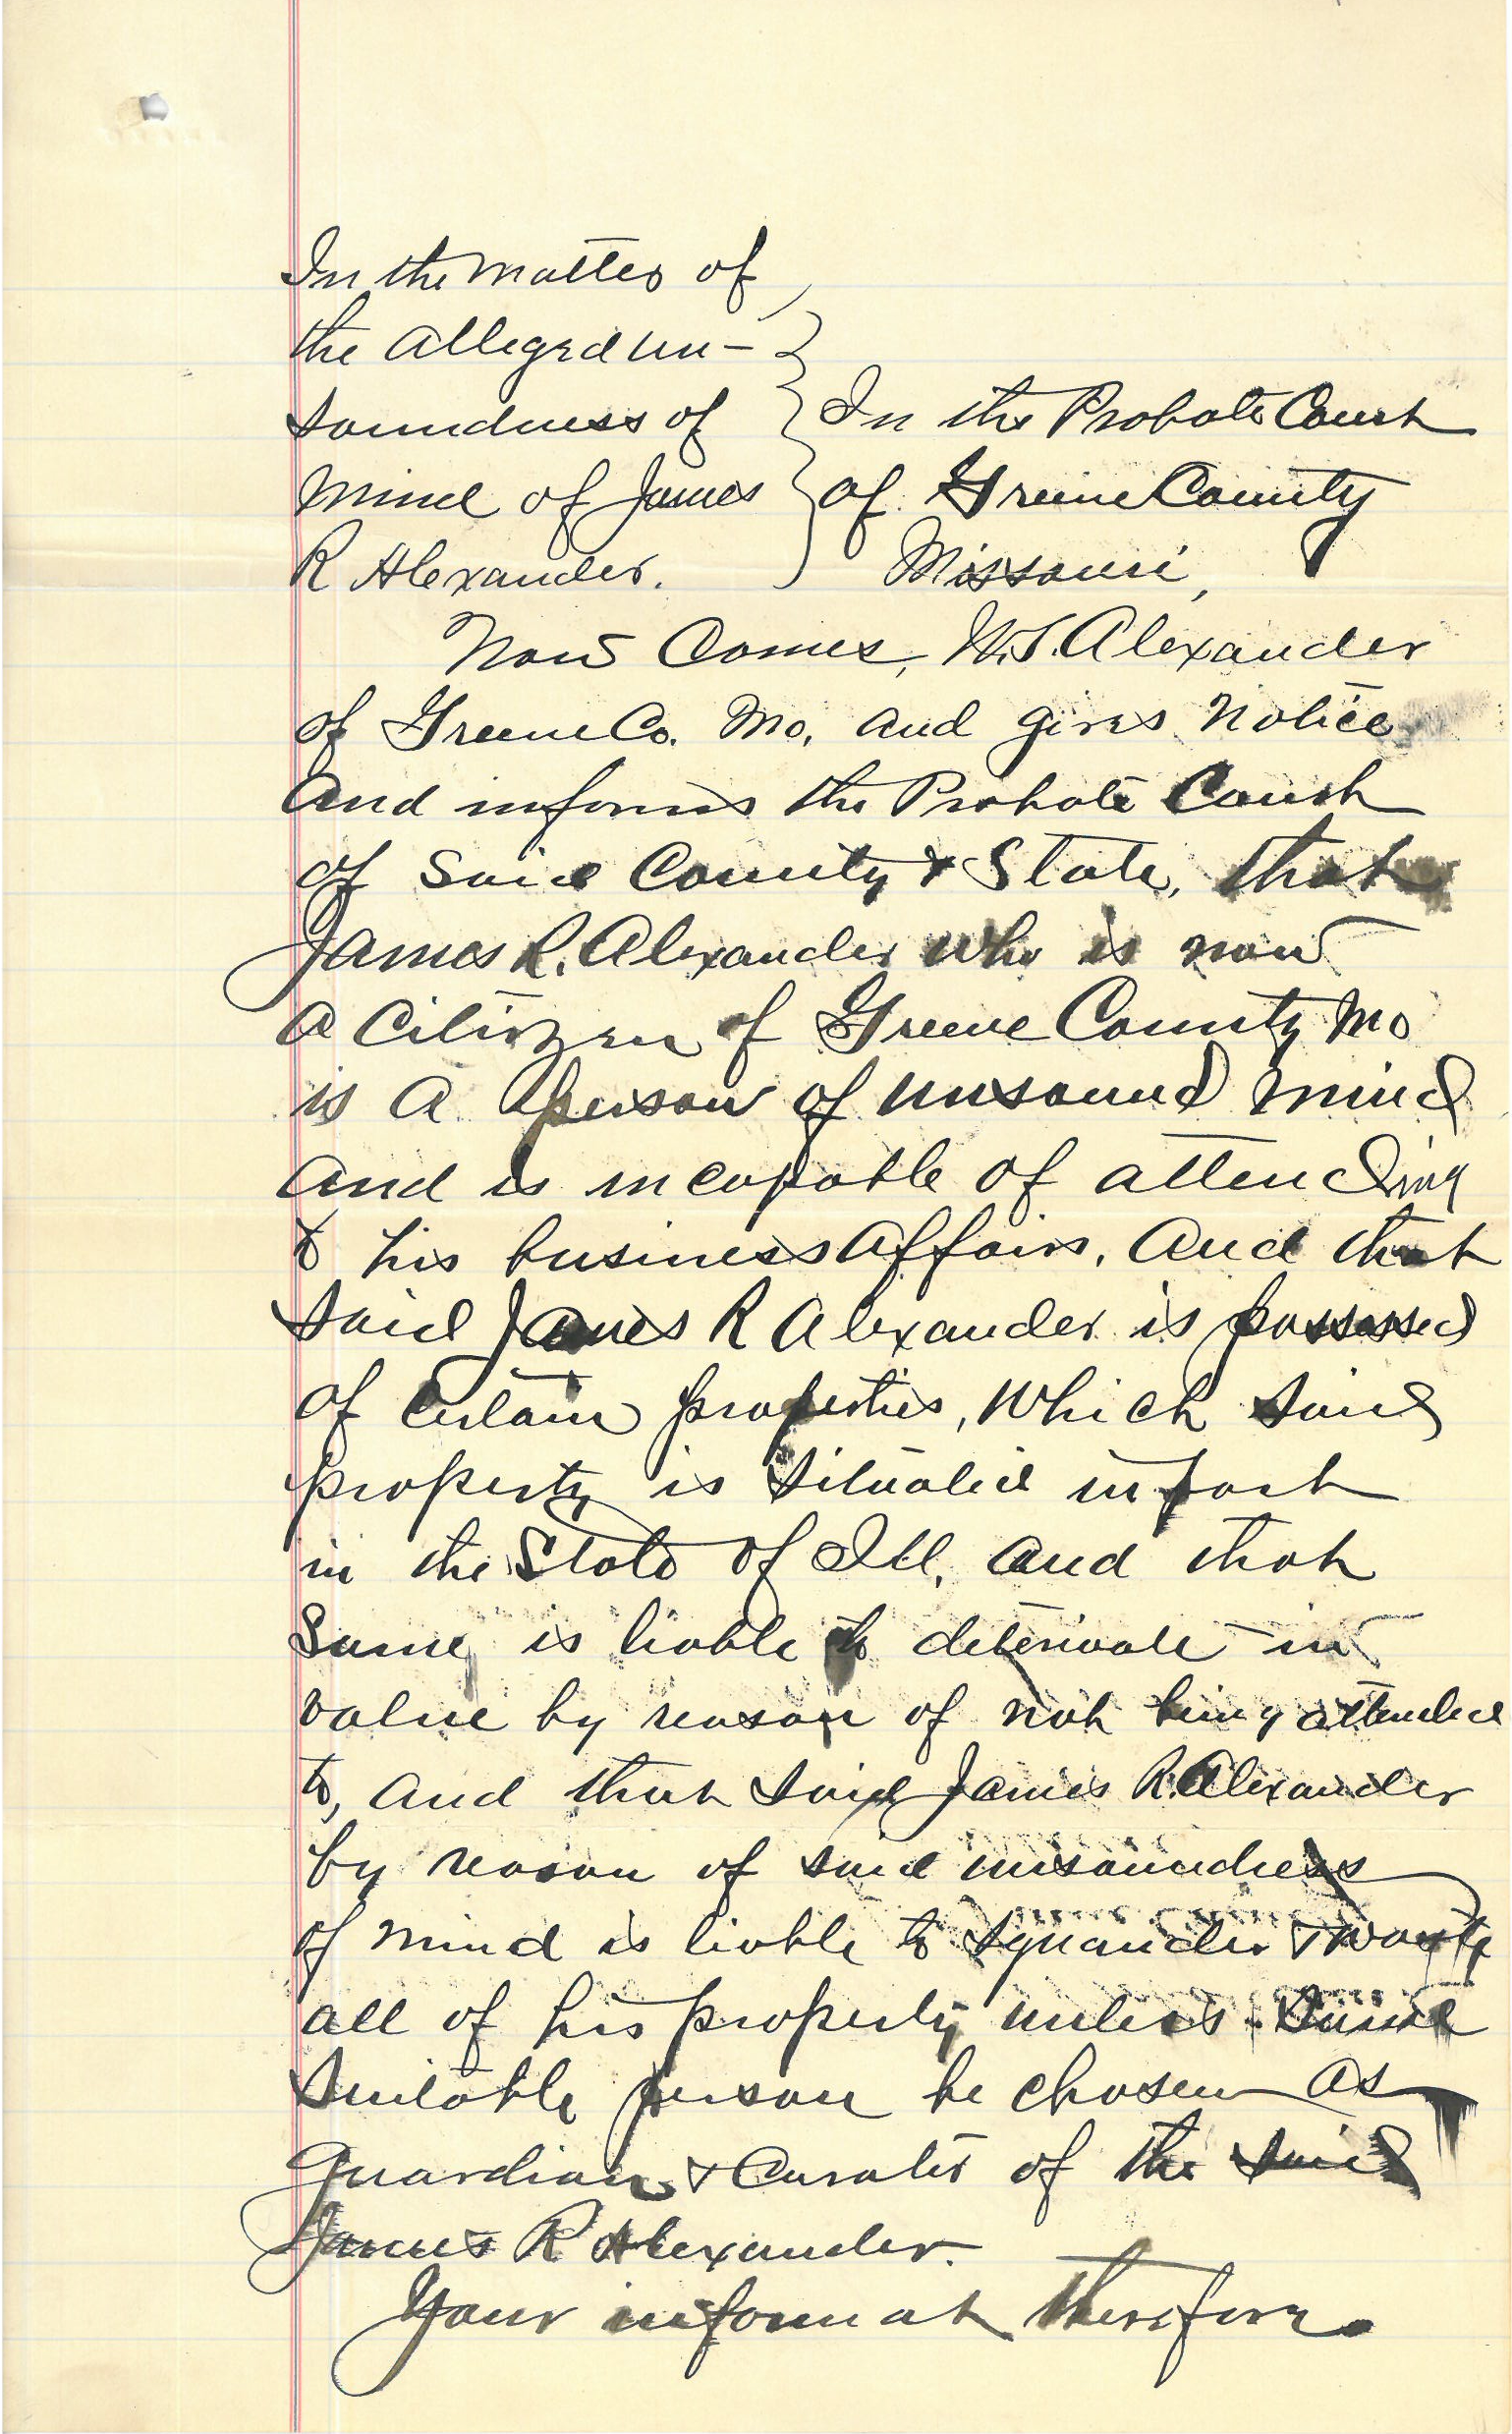 In the matter of
the alleged un-
soundness of
mind of James
R Alexander.
In the Probate Court
of Greene County
Missouri,
Now Comes, W.T. Alexander
of Greene Co. Mo, and gives notice
and informs the Probate Court
of said County & State, that
James R. Alexander who is now
a Citizen of Greene County Mo
is a person of unsound mind
and is incapable of attending
to his business affairs, and that
said James R Alexander is possessed
of certain properties, which said
property is situated in part
in the State of Ill, and that
same is liable to deterioate in
value by reason of not being attended
to, and that said James R. Alexander
by reason of said unsoundness
of mind is liable to squander & waste
all of his property unless some
suitable person be chosen as
Guardian & Curator of the said
James R Alexander.
Your informat therefore